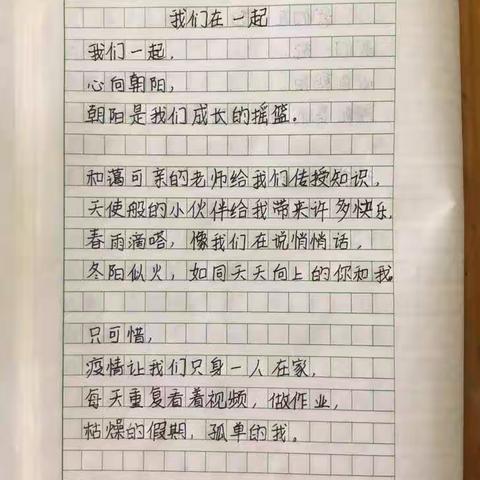 我们在一起
我们一起，
心向朝阳，
朝阳是我们成长的摇篮。
和蔼可亲的老师给我们传授知识，
天使般的小伙伴给我带来许多快乐，
春雨滴嗒，像我们在说悄悄话，
冬阳似火，如同天天向上的你和我
只可惜，
疫情让我们只身一人在家，
每天重复看着视频，做作业，
枯燥的假期，孤单的我。